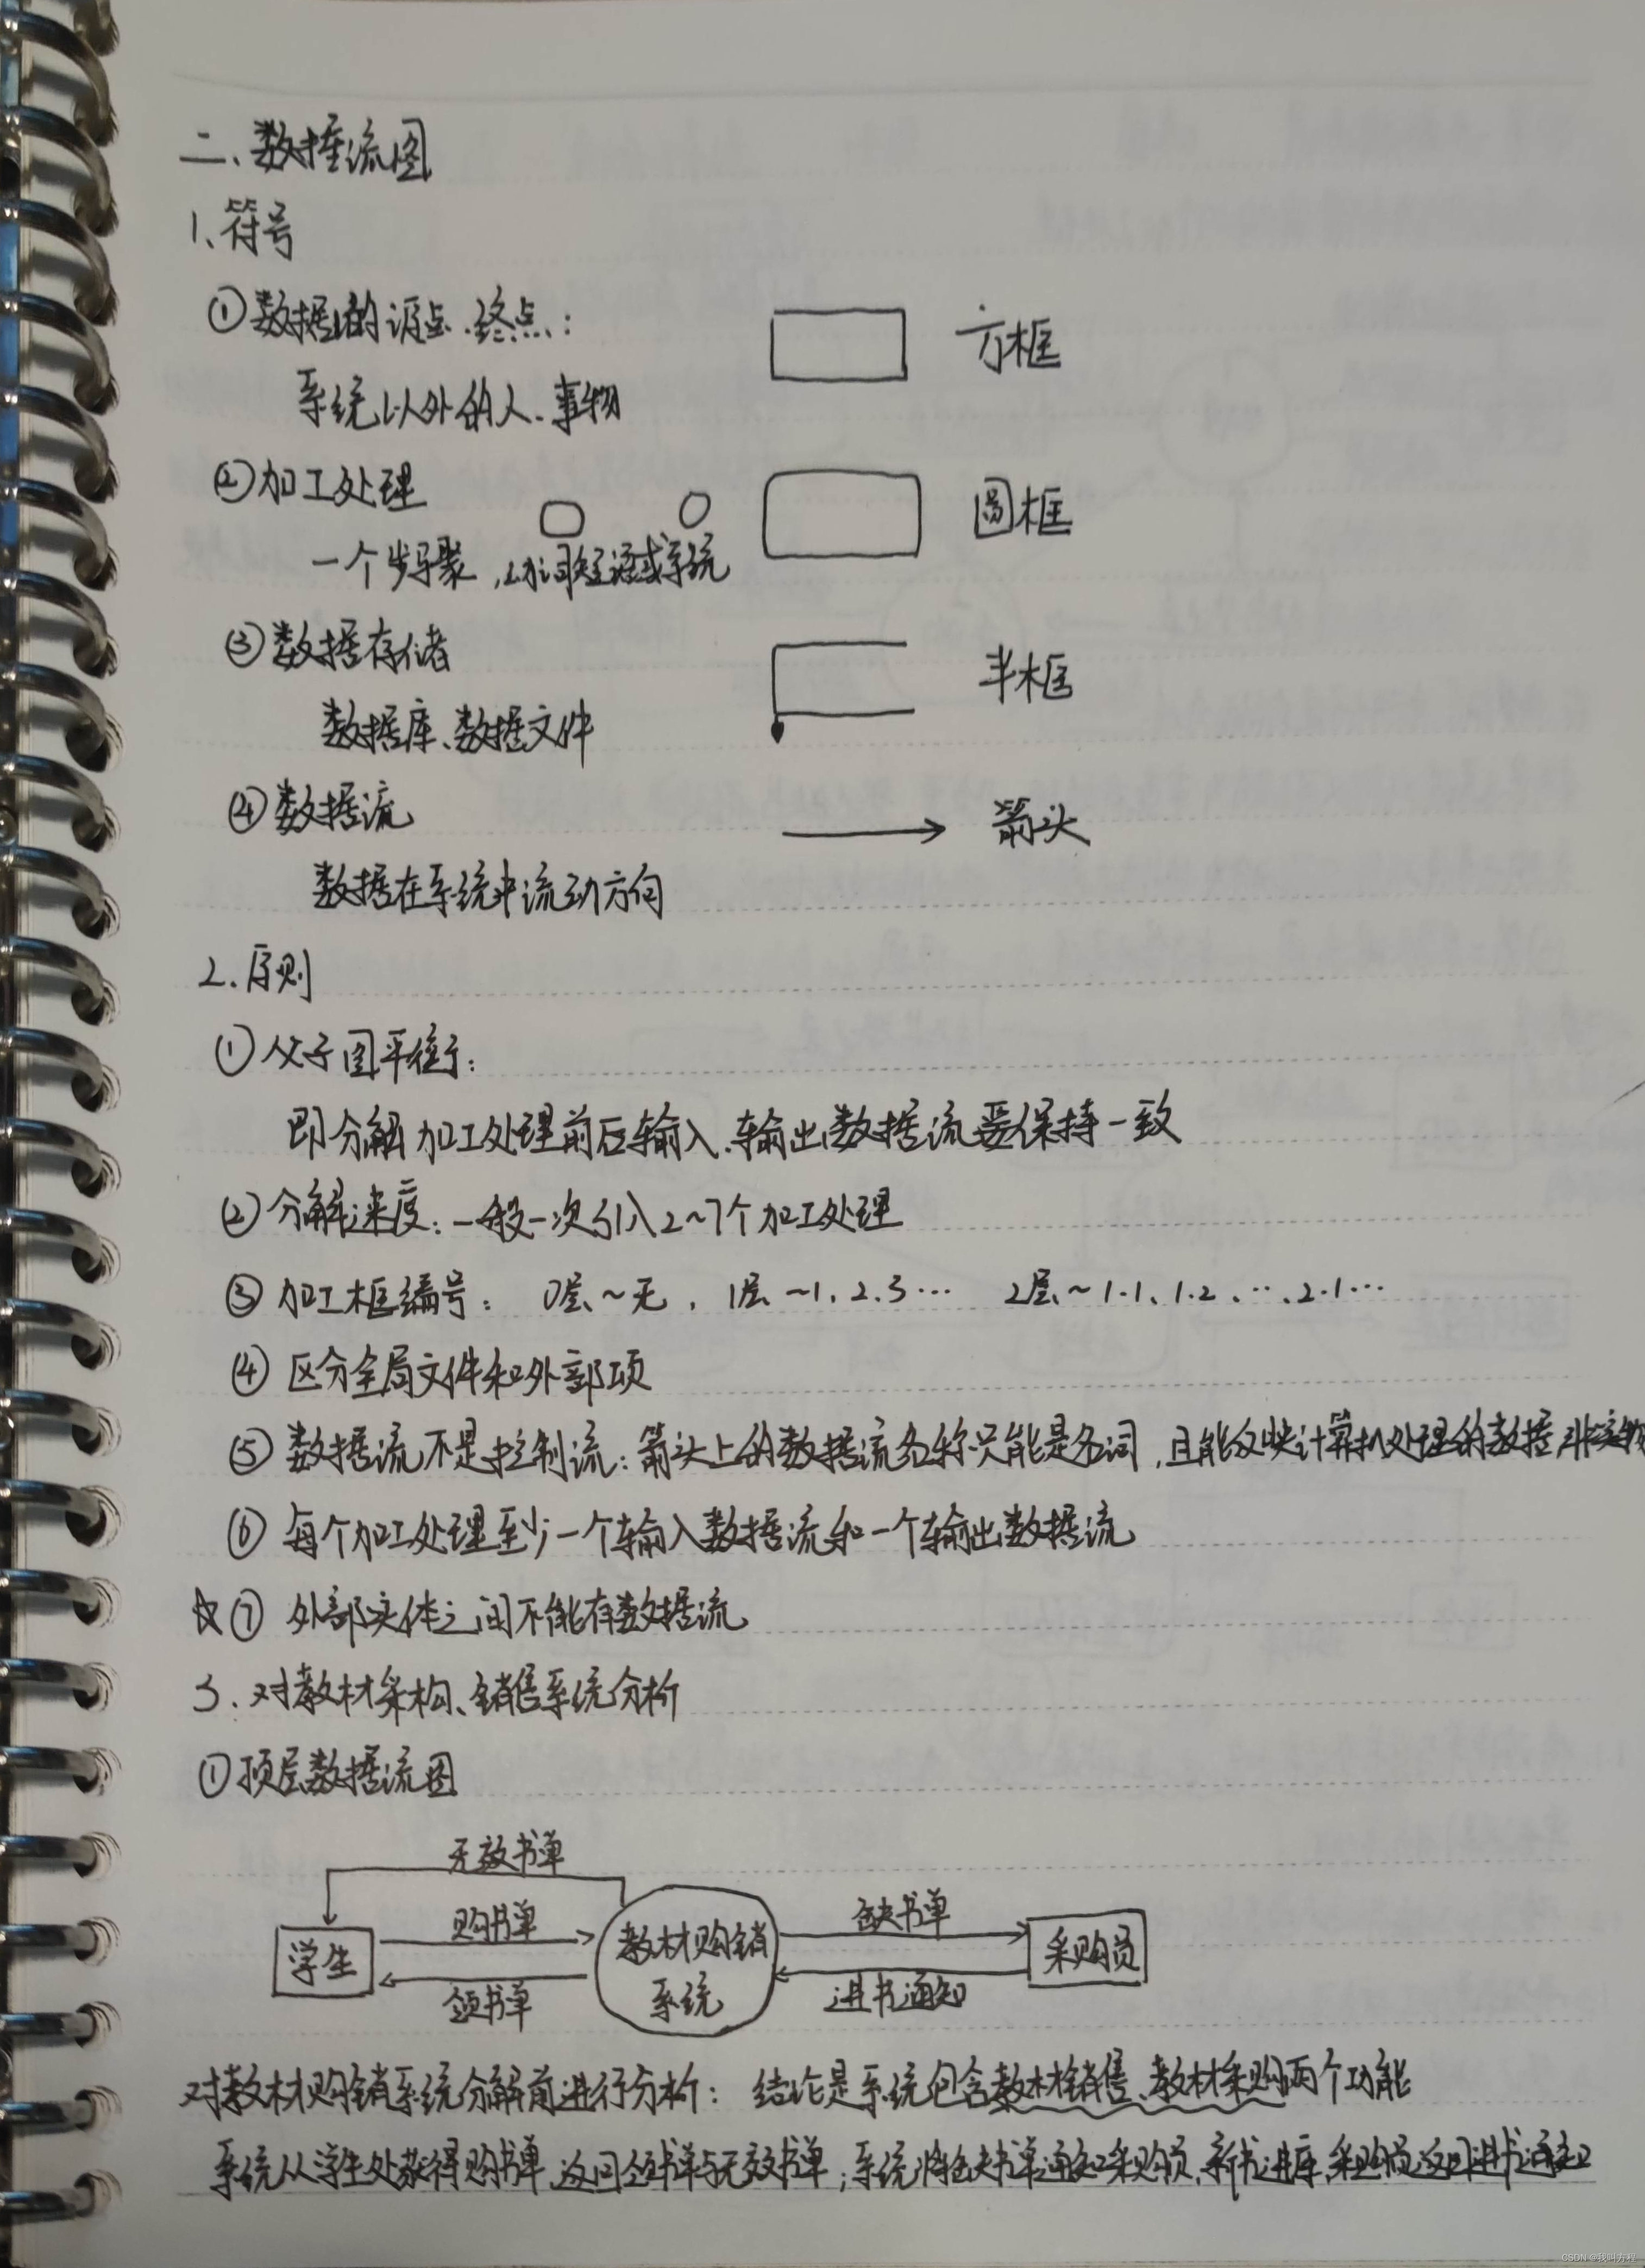 二、数据流图
1、符号
①数据的源点、终点：
方框
系统以外的人、事物
②加工处理
圆框
一个步骤，动词短语或系统
③数据存储
半框
数据库、数据文件
④数据流
箭头
数据在系统中流动方向
2.原则
①父子图平衡：
即分解加工处理前后输入、输出数据流要保持一致
②分解速度：一般一次引入2~7个加工处理
③加工框编号： 0层~无，1层~1、2、3… 2层~1.1、1.2、…、2.1…
④区分全局文件和外部项
⑤数据流不是控制流：箭头上的数据流名称只能是名词，且能被计算机处理的数据，非实物
⑥每个加工处理至少一个输入数据流和一个输出数据流
☆⑦外部实体之间不能存数据流
3.对教材采构、销售系统分析
①顶层数据流图
无效书单
购书单
缺书单
学生
教材购销
系统
采购员
领书单
进书通知
对教材购销系统分解前进行分析： 结论是系统包含教材销售、教材采购两个功能
系统从学生处获得购书单，返回领书单与无效书单；系统将缺书单通知采购员，新书进库，采购员返回进书通知
CSDN @我叫方程